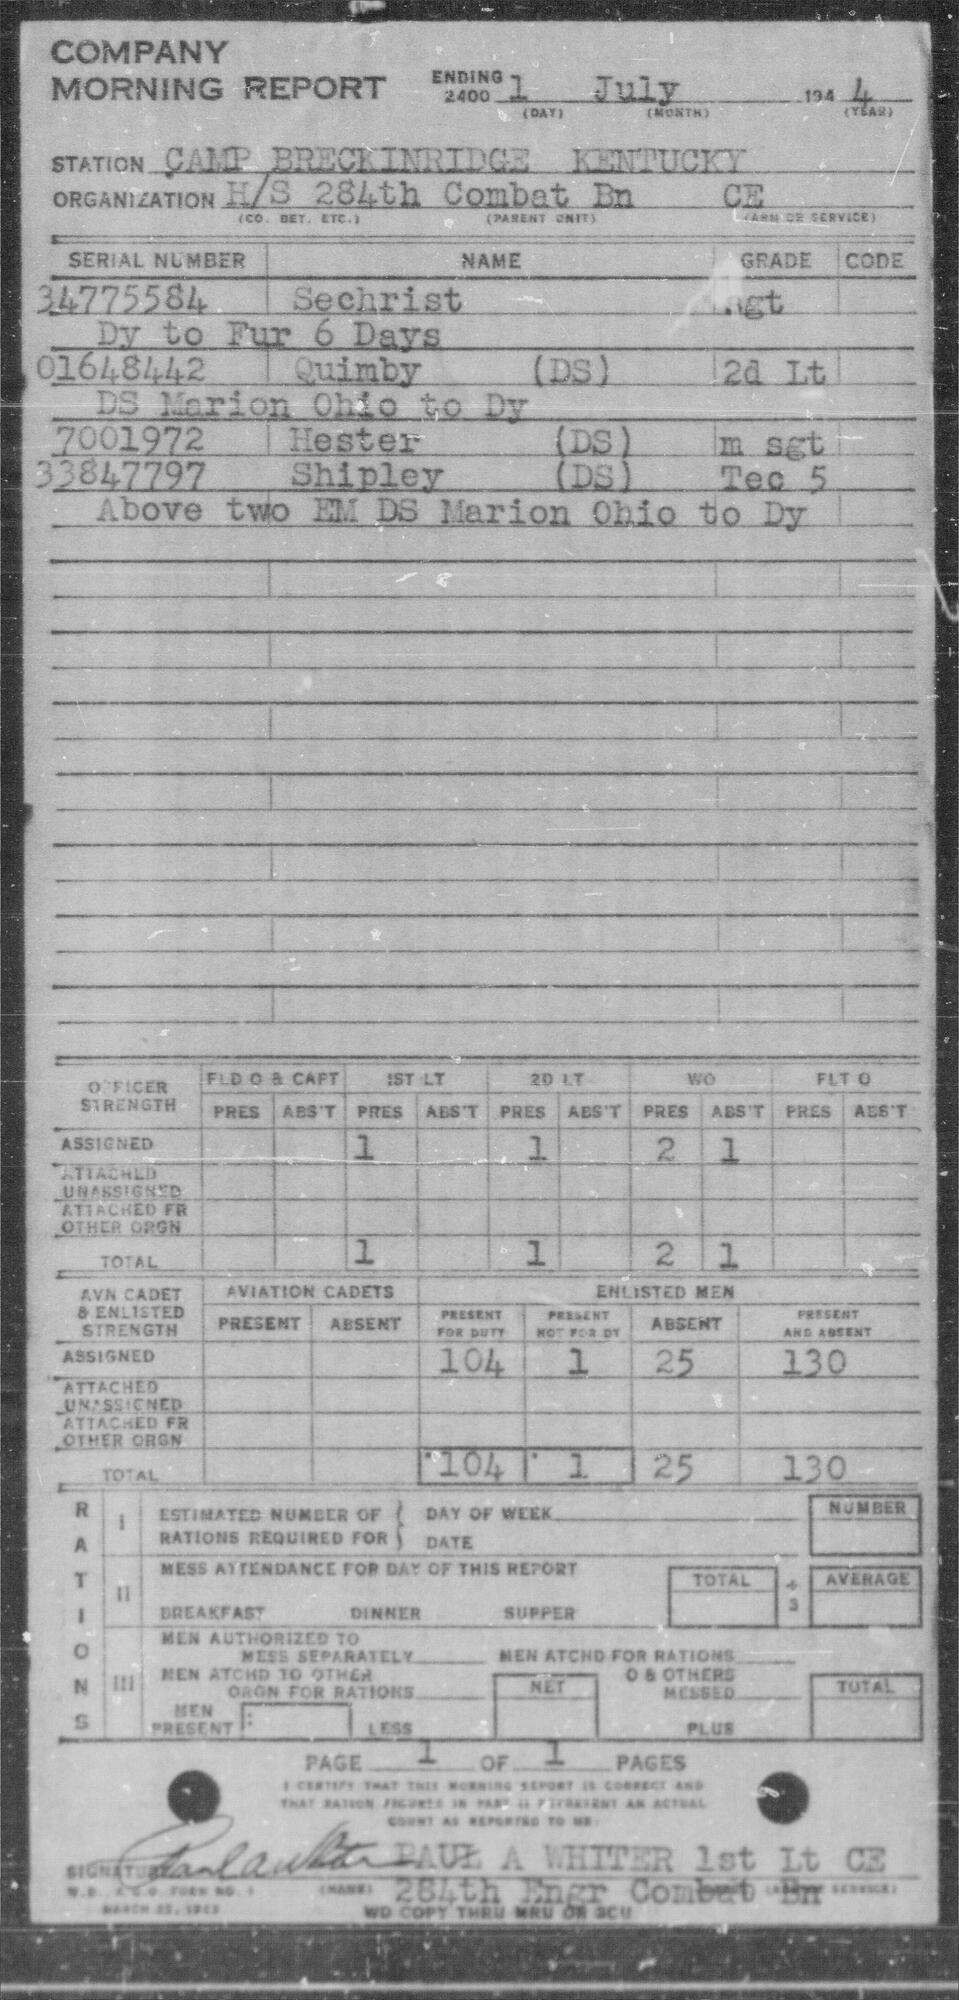 COMPANY
MORNING REPORT ENDING 2400 1 July 194 4
(DAY) (MONTH) (YEAR)
STATION CAMP BRECKINRIDGE KENTUCKY
ORGANIZATION H/S 284th Combat Bn CE
(CO. DET. ETC.) (PARENT UNIT) (ARM OR SERVICE)
SERIAL NUMBER NAME GRADE CODE
34775584 Sechrist sgt
Dy to Fur 6 Days
01648442 Quimby (DS) 2d Lt
DS Marion Ohio to Dy
7001972 Hester (DS) m sgt
33847797 Shipley (DS) Tec 5
Above two EM DS Marion Ohio to Dy
OFFICER STRENGTH FLD O & CAPT 1ST LT 2D LT WO FLT O
PRES ABS'T PRES ABS'T PRES ABS'T PRES ABS'T PRES ABS'T
ASSIGNED 1 1 2 1
ATTACHED UNASSIGNED
ATTACHED FR OTHER ORGN
TOTAL 1 1 2 1
AVN CADET & ENLISTED STRENGTH AVIATION CADETS ENLISTED MEN
PRESENT ABSENT PRESENT FOR DUTY PRESENT NOT FOR DY ABSENT PRESENT AND ABSENT
ASSIGNED 104 1 25 130
ATTACHED UNASSIGNED
ATTACHED FR OTHER ORGN
TOTAL 104 1 25 130
RATIONS
I ESTIMATED NUMBER OF RATIONS REQUIRED FOR DAY OF WEEK DATE NUMBER
II MESS ATTENDANCE FOR DAY OF THIS REPORT TOTAL ÷ 3 AVERAGE
BREAKFAST DINNER SUPPER
III MEN AUTHORIZED TO MESS SEPARATELY MEN ATCHD FOR RATIONS
MEN ATCHD TO OTHER ORGN FOR RATIONS NET O & OTHERS MESSED TOTAL
MEN PRESENT : LESS PLUS
PAGE 1 OF 1 PAGES
I CERTIFY THAT THIS MORNING REPORT IS CORRECT AND
THAT RATION FIGURES IN PART II REPRESENT AN ACTUAL
COUNT AS REPORTED TO ME:
SIGNATURE Paul A Whiter PAUL A WHITER 1st Lt CE
W.D., A.G.O. FORM NO. 1 (NAME) 284th Engr Combat Bn (ARM OR SERVICE)
MARCH 22, 1943 WD COPY THRU MRU OR SCU